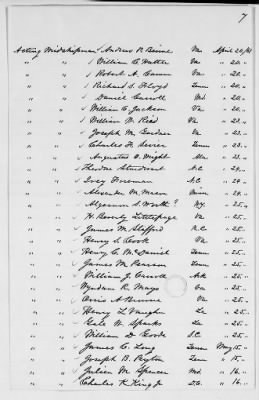 7
Acting Midshipman Andrew P. Beirne Va April 20/61
" " William C. Hutter Va " 20 "
" " Robert A. Camm Va " 20 "
" " Richard S. Floyd Tenn " 20 "
" " Daniel Carroll Md " 20 "
" " William C. Jackson Va " 20 "
" " William W. Read Va " 22 "
" " Joseph M. Gardner Va " 23 "
" " Charles F. Sevier Tenn " 23 "
" " Augustus O. Wright Ala " 23 "
" " Theodore Sturdivant N.C " 24 "
" " Ivey Foreman N.C " 24 "
" " Alexander M. Mason " 24 "
" " Algernon S. Worth ? Ny " 25 "
" " H. Beverly Littlepage Va " 25 "
" " James M. Stafford N.C " 25 "
" " Henry S. Cook Va " 25 "
" " Henry C. McDaniel Tenn " 25 "
" " James M. Pearson Tenn " 25 "
" " William J. Craig Ark " 25 "
" " Wyndham R. Mayo Va " 25 "
" " Orris A. Browne Va " 25 "
" " Henry L. Vaughn La " 25 "
" " Gale W. Sparks La " 25 "
" " William D. Goode S.C " 25 "
" " James C. Long Tenn May 15 "
" " Joseph B. Peyton Tenn " 15 "
" " Julian M. Spencer Md " 16 "
" " Charles K. King Jr D.C. " 16 "